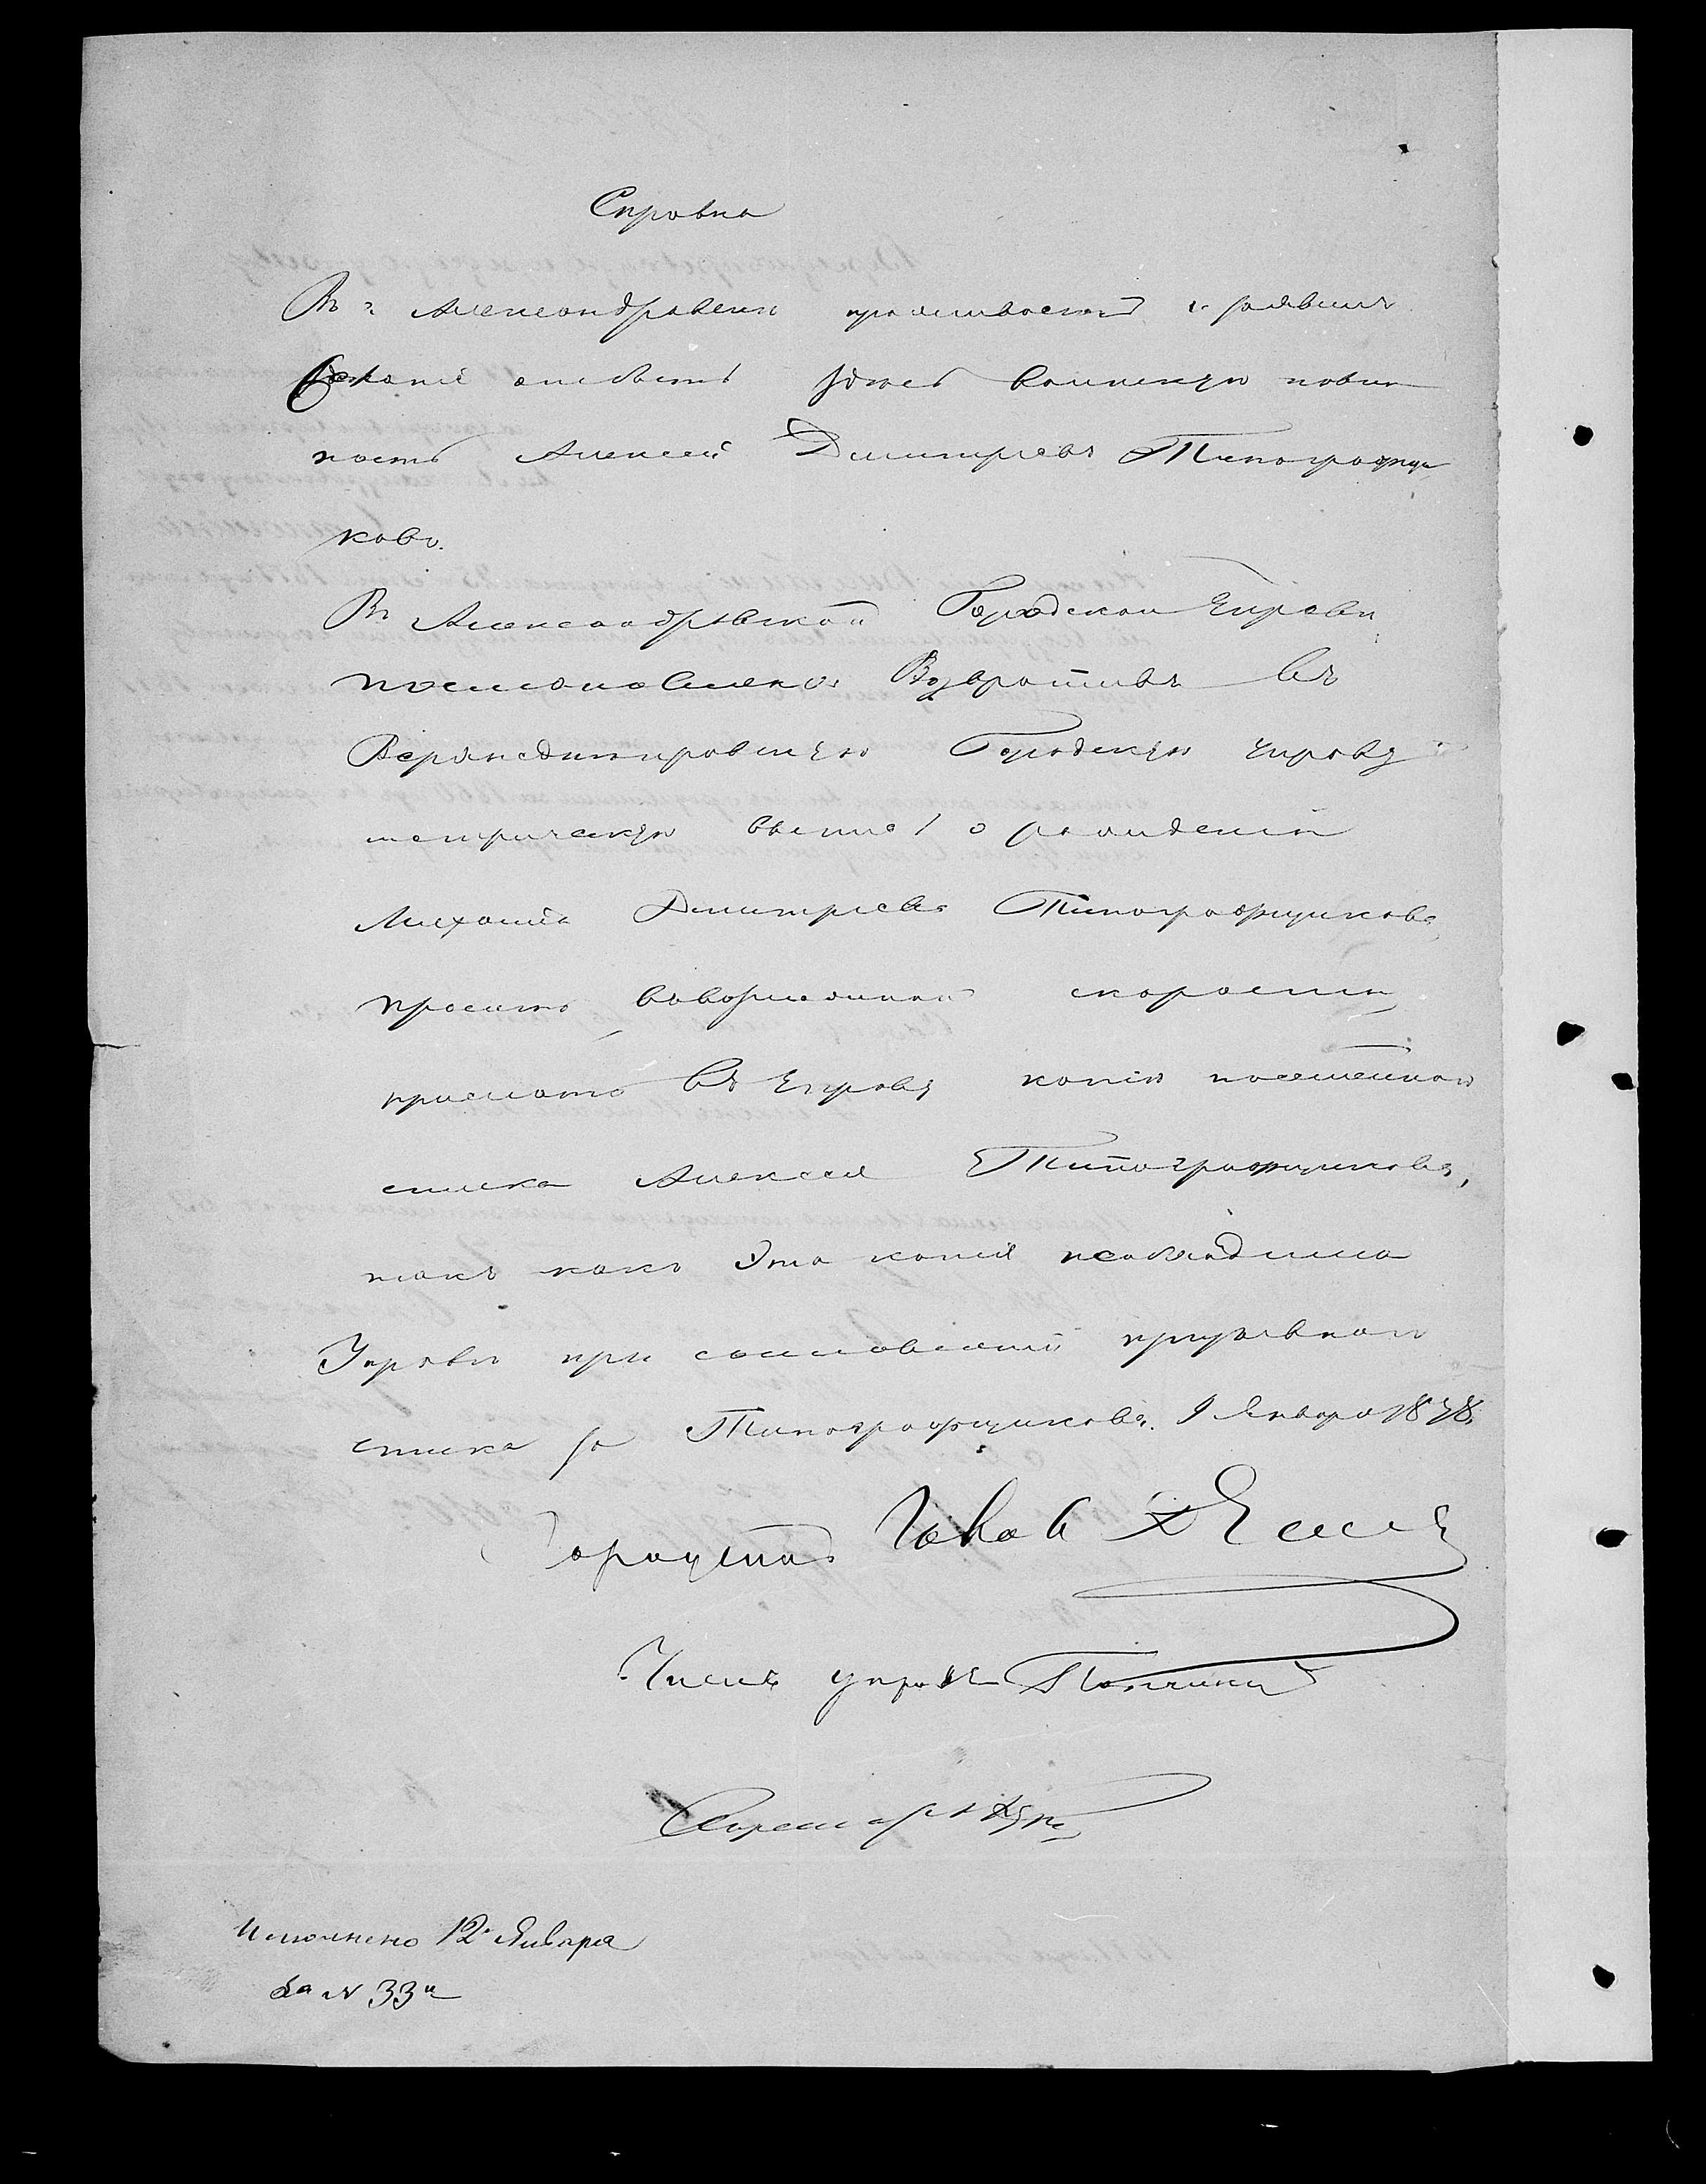 Справка
Въ г. Александровске проживаетъ и заявилъ
желаніе отбыть здесь воинскую повин
ность Алексей Дмитріевъ Типографщи
ковъ.
Въ Александровской Городской Управе
постановлено: Возвративъ въ
Верхнеднепровскую Городскую Управу
метрическую выпись о рожденіи
Михаила Дмитріева Типографщикова,
просить
прислать въ Управу копію посемейнаго
списка Алексея Типографщикова,
такъ какъ эта копія необходима
Управе при составленіи призывнаго
списка за Типографщикова. 9 Января 1878.
Городской Яковъ
Членъ управы
Секретарь
Исполнено 12 Января
за N 33